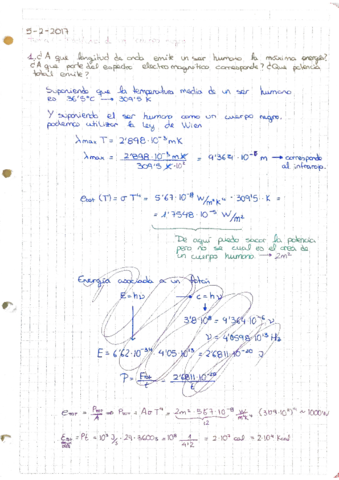 5-2-2017
1. ¿A que longitud de onda emite un ser humano la máxima energía?
¿A que parte del espectro electromagnético corresponde? ¿Que potencia
total emite?
Suponiendo que la temperatura media de un ser humano
es 36'5ºC → 309'5 K
Y suponiendo el ser humano como un cuerpo negro,
podemos utilizar la Ley de Wien
λmax T = 2'898·10⁻³ mK
λmax = 2'898·10⁻³ mK / 309'5 K = 9'364·10⁻⁶ m → corresponde
al infrarrojo.
εtot (T) = σ T⁴ = 5'67·10⁻⁸ W/m²K⁴ · 309'5 · K =
= 1'7548·10⁻⁵ W/m²
De aqui puedo sacar la potencia
pero no se cual es el area de
un cuerpo humano → 2m²
Energía asociada a un fotón
E = hν → c = λν
3'8·10⁸ = 9'364·10⁻⁶ ν
ν = 4'0598·10¹³ Hz
E = 6'62·10⁻³⁴ · 4'05·10¹³ = 2'6811·10⁻²⁰ J
P = Etot / t = 2'6811·10⁻²⁰ / t
εtot = Ptot / A ⇒ Ptot = A σ T⁴ = 2m² · 5'67·10⁻⁸ W/m²K⁴ · (309'5)⁴ ~ 1000W
= Pt = 10³ J/s · 24·3600s = 10⁸ · 1/4'2 = 2·10⁷ cal = 2·10⁴ Kcal